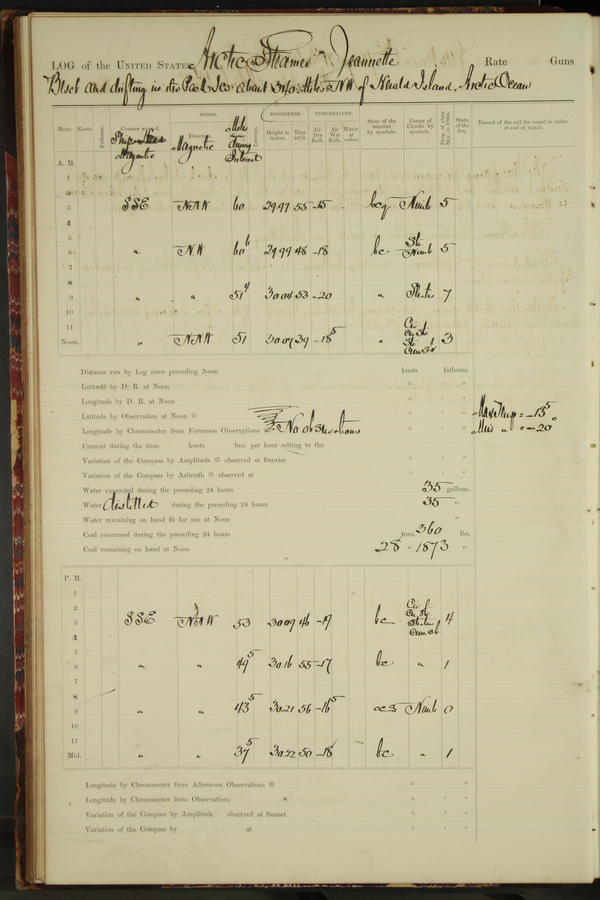 LOG of the UNITED STATES Arctic Steamer Jeannette Rate Guns
Beset and drifting in the Pack Ice about Miles NW of Herald Island, Arctic Ocean
WINDS. BAROMETER. TEMPERATURE.
Hour. Knots. Fathoms. Courses steered. Direction. Leeway. Height in inches. Ther. att'd. Air Dry Bulb. Air Wet Bulb. Water at surface. State of the weather by symbols. Forms of Clouds by symbols. Prop. of clear Sky, in 10ths. State of the Sea. Record of the sail the vessel is under at end of watch.
Ship's Head Magnetic Magnetic Miles During Interval
A. M.
1
2
3 SSE NNW 60 29.97 55 -15 bcq Nimb 5
4
5
6 " NW 60 6 29.99 48 -18 bc Str Nimb 5
7
8
9 " " 51 4 30.04 53 -20 " Stratus 7
10
11
Noon. " NNW 51 30.07 39 -18 5 " 3
Distance run by Log since preceding Noon knots fathoms.
Latitude by D. R. at Noon ° ' "
Longitude by D. R. at Noon ° ' "
Latitude by Observation at Noon ° ' "
Longitude by Chronometer from Forenoon Observations No observations ° ' "
Max Temp = -13 5
Min " = -20°
Current during the time knots fms. per hour setting to the
Variation of the Compass by Amplitude observed at Sunrise ° ' "
Variation of the Compass by Azimuth observed at ° ' "
Water expended during the preceding 24 hours 35 gallons.
Water distilled during the preceding 24 hours 35 "
Water remaining on hand fit for use at Noon "
Coal consumed during the preceding 24 hours tons. 360 lbs.
Coal remaining on hand at Noon 28 " 1873 "
P. M.
1
2
3 SSE NNW 53 30.09 46 -19 bc 4
4
5
6 " " 49 5 30.16 55 -17 bc " 1
7
8
9 " " 43 5 30.21 56 -16 5 ocs Nimb 0
10
11
Mid. " " 37 5 30.22 50 -18 bc " 1
Longitude by Chronometer from Afternoon Observations ° ' "
Longitude by Chronometer from Observations ° ' "
Variation of the Compass by Amplitude observed at Sunset ° ' "
Variation of the Compass by at ° ' "